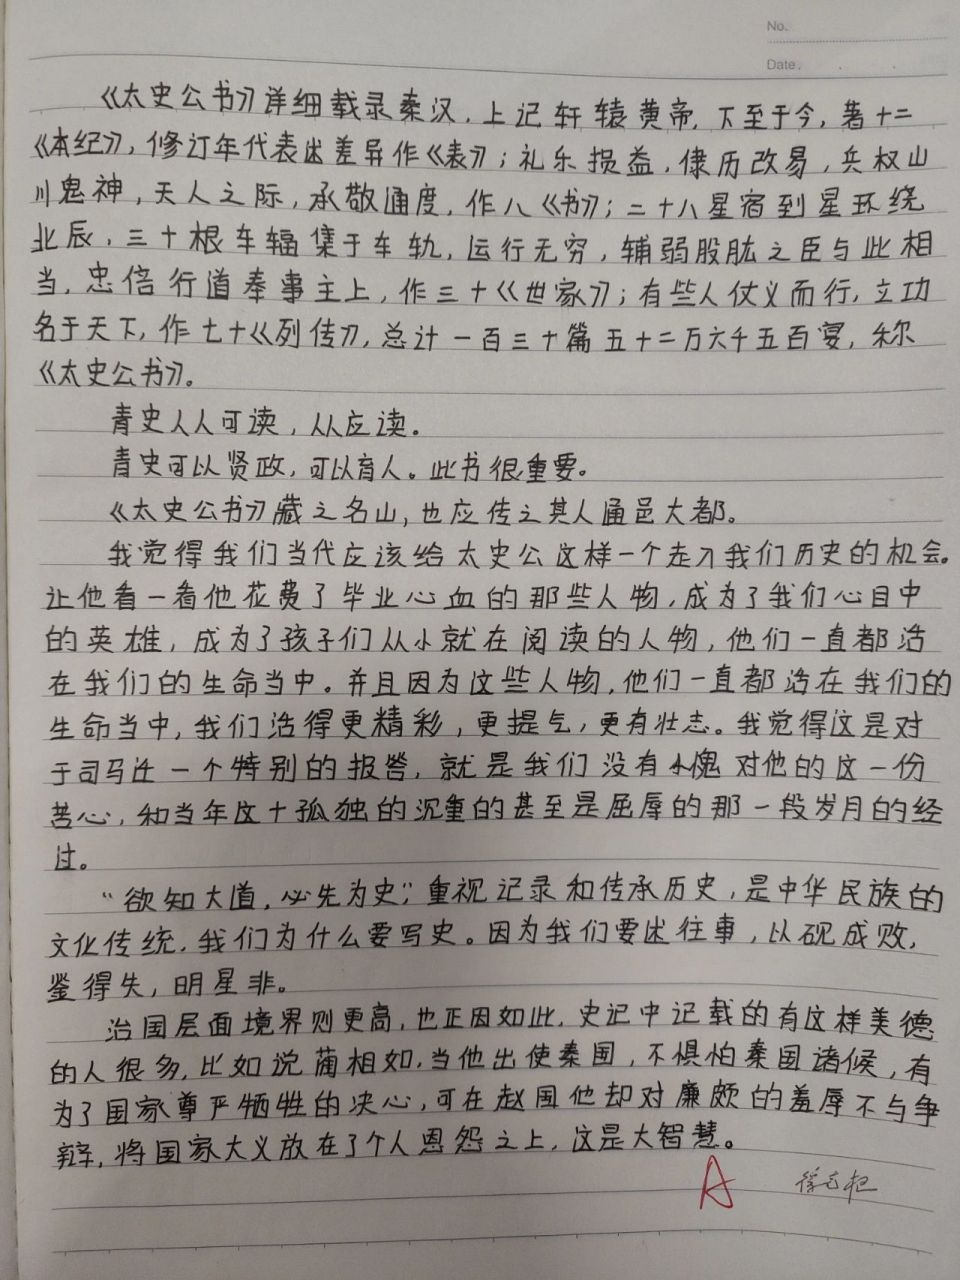 No.
Date.
《太史公书》详细载录秦汉，上记轩辕黄帝，下至于今，著十二
《本纪》，修订年代表述差异作《表》；礼乐损益，律历改易，兵权山
川鬼神，天人之际，承敬通度，作八《书》；二十八星宿到星环绕
北辰，三十根车辐集于车轨，运行无穷，辅弱股肱之臣与此相
当，忠信行道奉事主上，作三十《世家》；有些人仗义而行，立功
名于天下，作七十《列传》，总计一百三十篇五十二万六千五百字，称
《太史公书》。
青史人人可读，人人应读。
青史可以贤政，可以育人。此书很重要。
《太史公书》藏之名山，也应传之其人通邑大都。
我觉得我们当代应该给太史公这样一个走入我们历史的机会。
让他看一看他花费了毕业心血的那些人物，成为了我们心目中
的英雄，成为了孩子们从小就在阅读的人物，他们一直都活
在我们的生命当中。并且因为这些人物，他们一直都活在我们的
生命当中，我们活得更精彩，更提气，更有壮志。我觉得这是对
于司马迁一个特别的报答，就是我们没有愧对他的这一份
苦心，和当年这十孤独的沉重的甚至是屈辱的那一段岁月的经
过。
“欲知大道，必先为史”，重视记录和传承历史，是中华民族的
文化传统，我们为什么要写史。因为我们要述往事，以砚成败，
鉴得失，明星非。
治国层面境界则更高，也正因如此，史记中记载的有这样美德
的人很多，比如说蔺相如，当他出使秦国，不惧怕秦国诸候，有
为了国家尊严牺牲的决心，可在赵国他却对廉颇的羞辱不与争
辩，将国家大义放在了个人恩怨之上，这是大智慧。
A